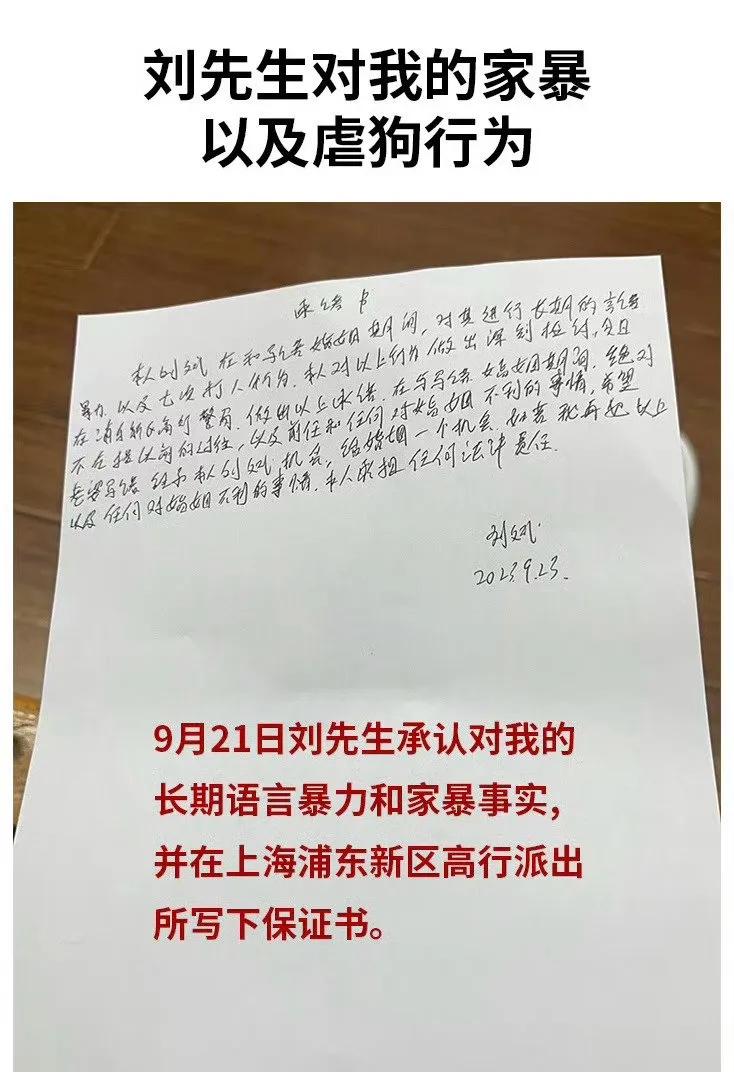 刘先生对我的家暴
以及虐狗行为
承诺书
本人刘 在和马 婚姻期间,对其进行长期的言语
暴力以及七次打人行为.本人对以上行为做出深刻检讨,今日
在浦东新区高行警局.做出以上承诺.在与马 婚姻期间.绝对
不在提以前的过往,以及前任和任何对婚姻不利的事情,希望
老婆马 给予本人刘 机会,给婚姻一个机会.如若我再犯以上
以及任何对婚姻不利的事情.本人承担任何法律责任.
刘
2023.9.23.
9月21日刘先生承认对我的
长期语言暴力和家暴事实,
并在上海浦东新区高行派出
所写下保证书。